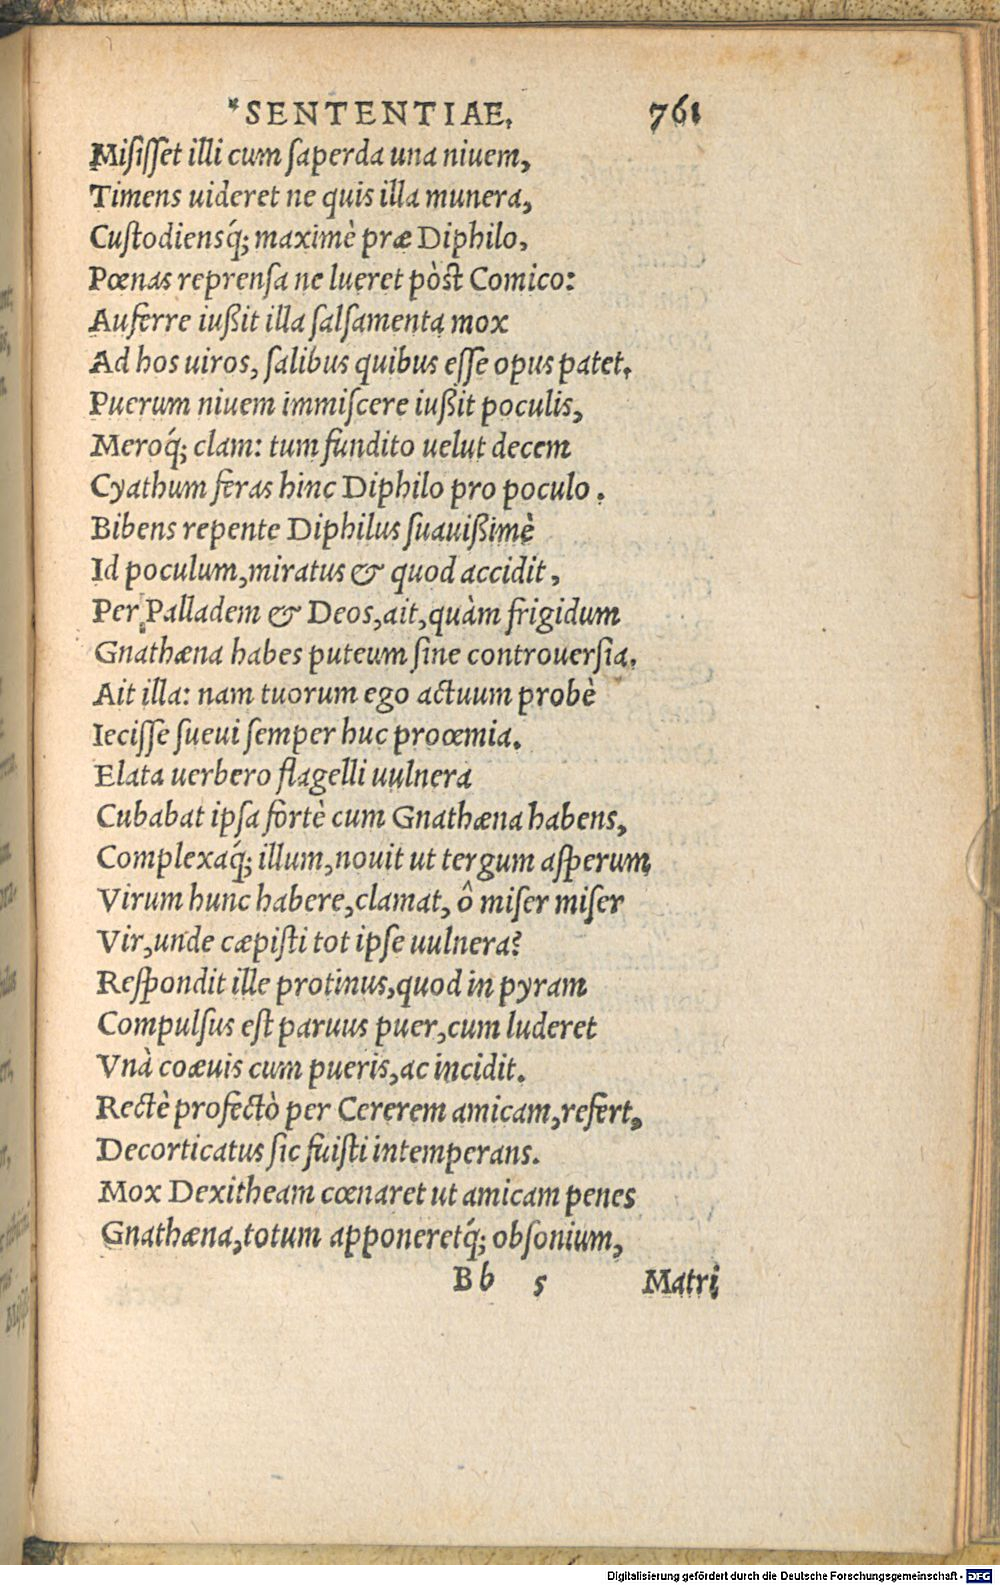 SENTENTIAE. 761
Misisset illi cum saperda una niuem,
Timens uideret ne quis illa munera,
Custodiensq́; maximè præ Diphilo,
Pœnas reprensa ne lueret pòst Comico:
Auferre iußit illa salsamenta mox
Ad hos uiros, salibus quibus esse opus patet.
Puerum niuem immiscere iußit poculis,
Meroq́; clam: tum fundito uelut decem
Cyathum feras hinc Diphilo pro poculo.
Bibens repente Diphilus suauißimè
Id poculum, miratus & quod accidit,
Per Palladem & Deos, ait, quàm frigidum
Gnathæna habes puteum sine controuersia.
Ait illa: nam tuorum ego actuum probè
Iecisse sueui semper huc proœmia.
Elata uerbero flagelli uulnera
Cubabat ipsa fortè cum Gnathæna habens,
Complexaq́; illum, nouit ut tergum asperum
Virum hunc habere, clamat, ô miser miser
Vir, unde cæpisti tot ipse uulnera?
Respondit ille protinus, quod in pyram
Compulsus est paruus puer, cum luderet
Vnà coæuis cum pueris, ac incidit.
Rectè profectò per Cererem amicam, refert,
Decorticatus sic fuisti intemperans.
Mox Dexitheam cœnaret ut amicam penes
Gnathæna, totum apponeretq́; obsonium,
Bb 5 Matri
Digitalisierung gefördert durch die Deutsche Forschungsgemeinschaft - DFG